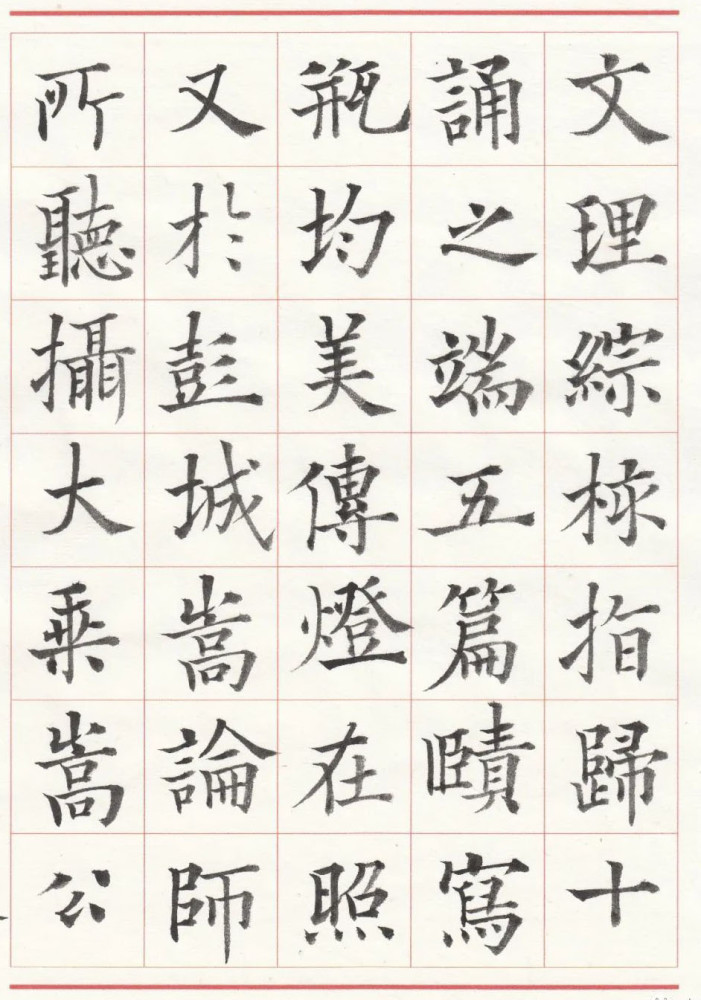 文理綜㭲指歸十
誦之端五篇賾寫
瓶均美傳燈在照
又於彭城嵩論師
所聽攝大乘嵩公